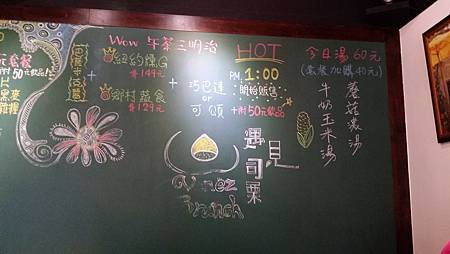 Wow 午茶三明治
HOT
今日湯 60元
(套餐加購40元)
蘑菇濃湯
牛奶玉米湯
紐約燻G
$149元
+
鄉村蔬食
$129元
+
巧巴達
or
可頌
PM 1:00
開始販售
+附50元飲品
套餐
附50元飲品
遇見
司栗
Brunch